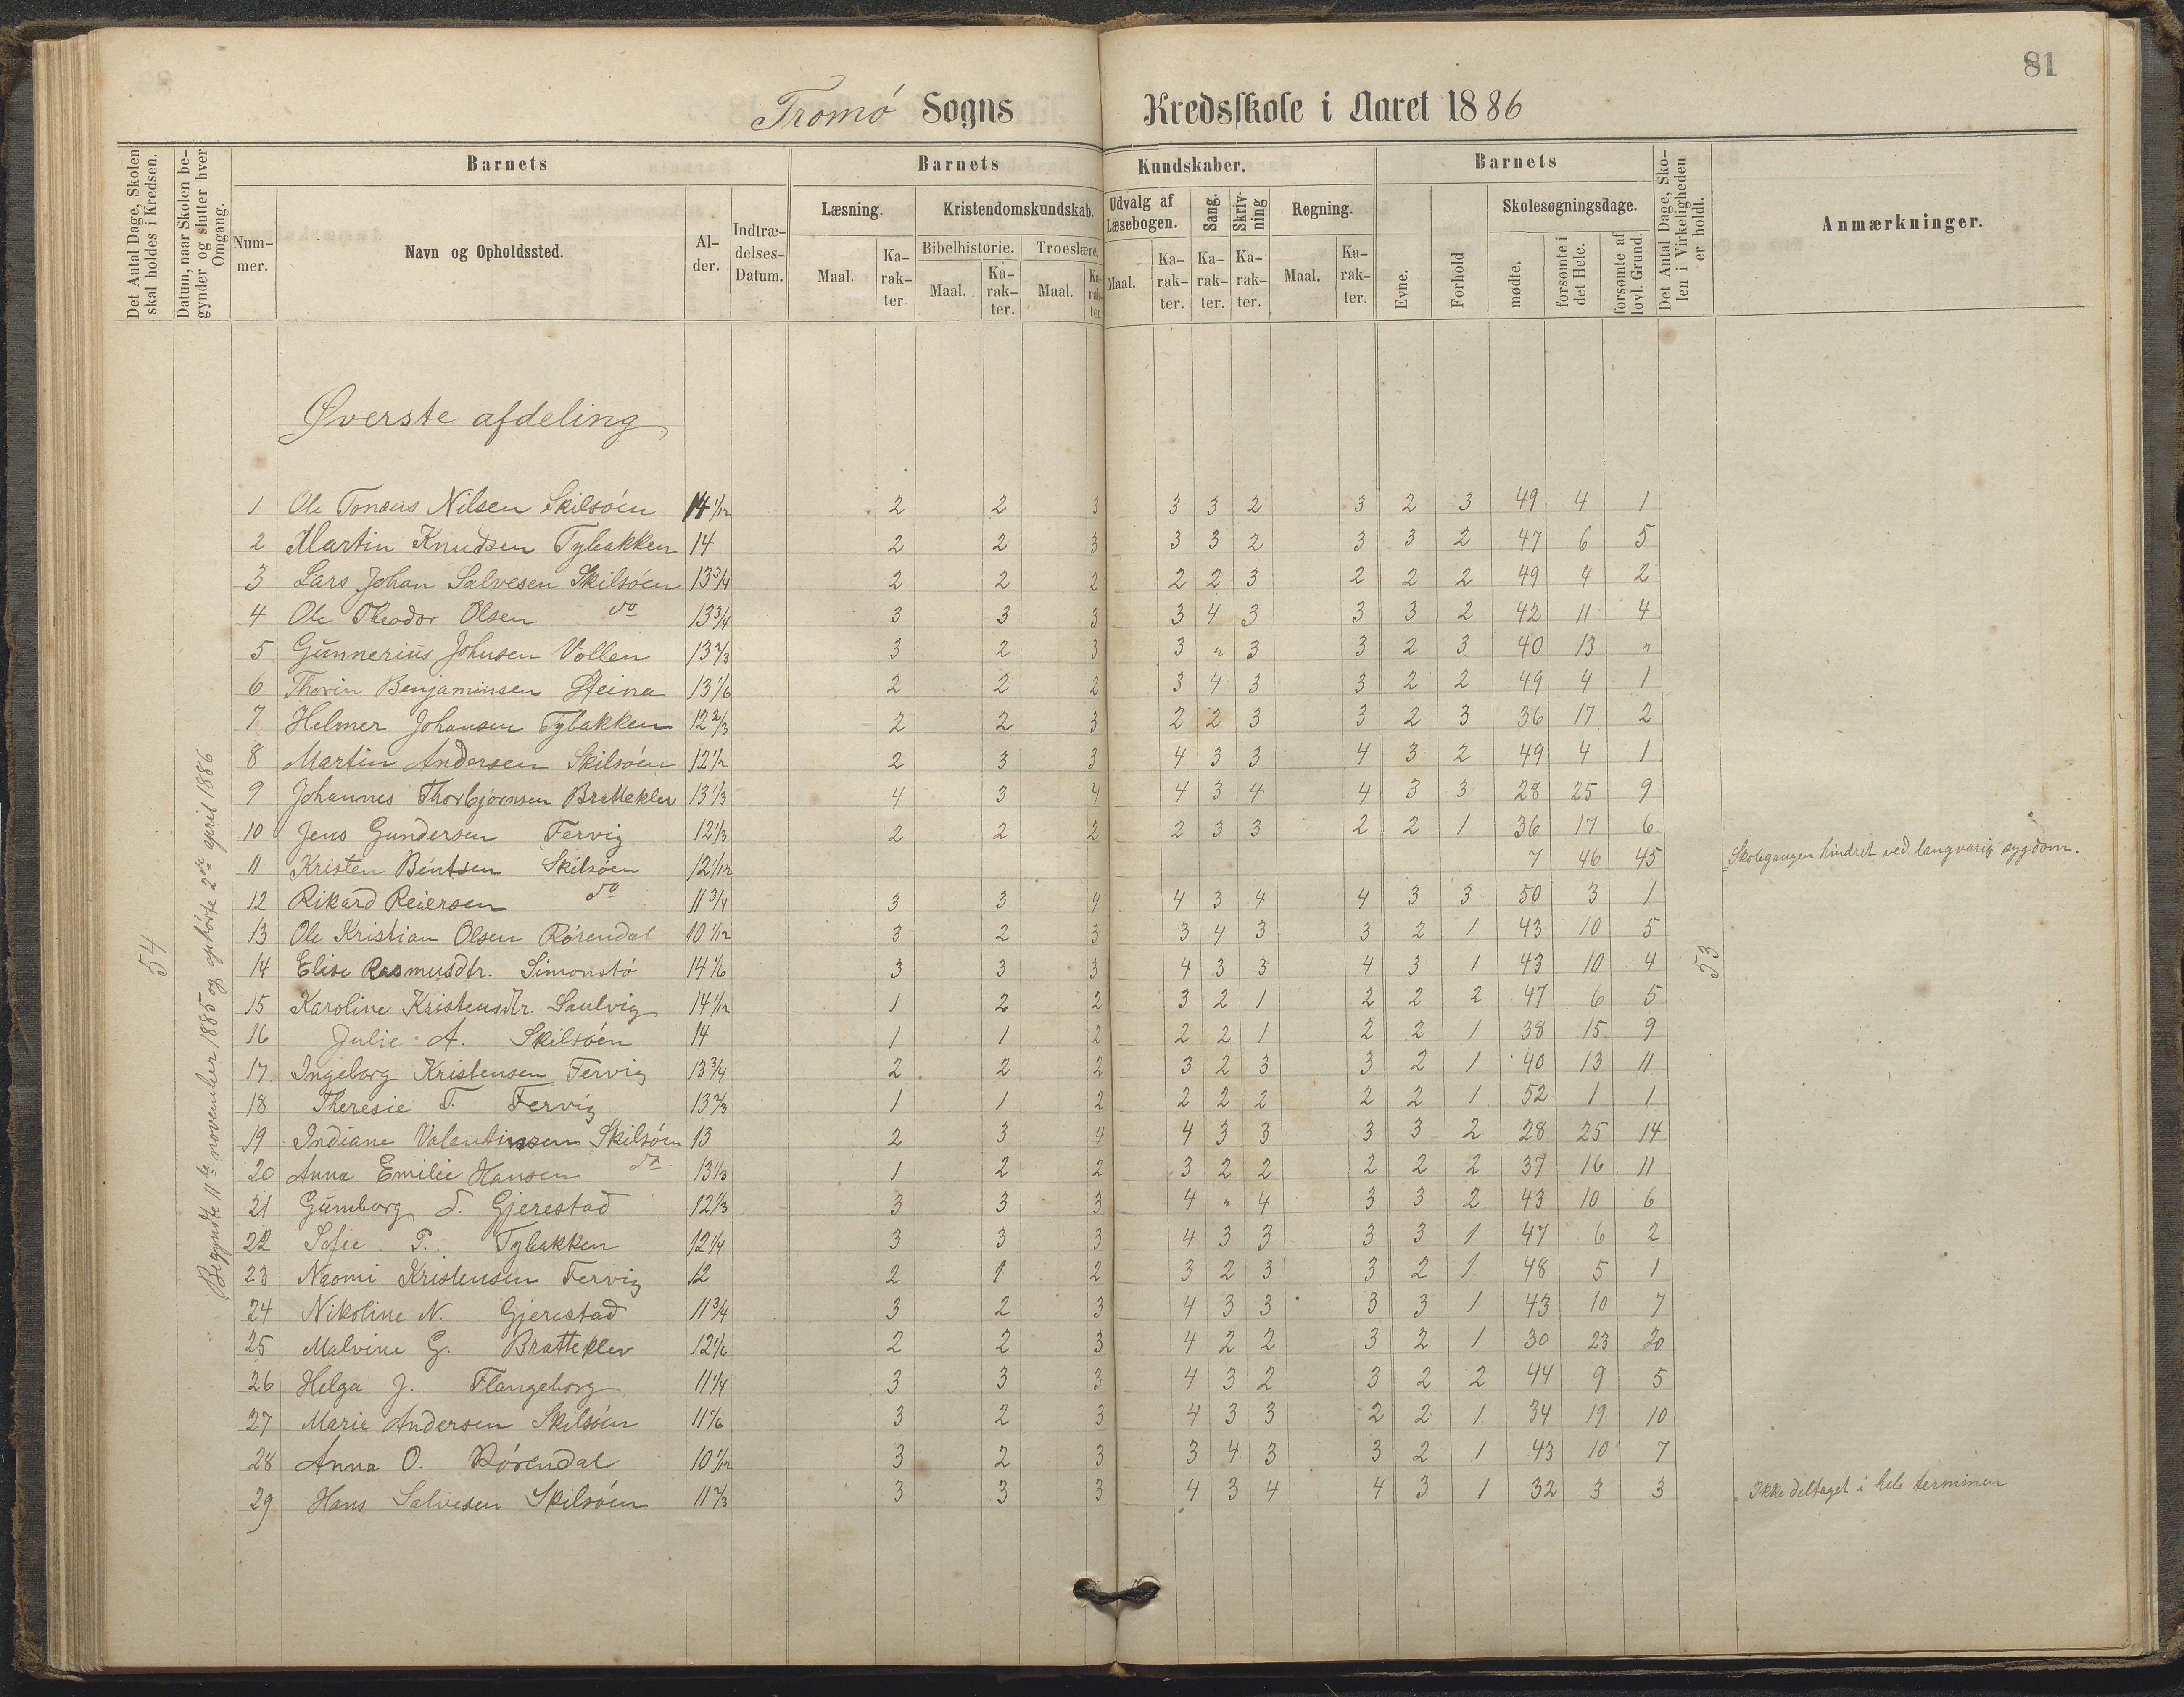 81
Tromö Sogns Kredsskole i Aaret 1886
Det Antal Dage, Skolen skal holdes i Kredsen.
Datum, naar Skolen begynder og slutter hver Omgang.
Barnets
Barnets Kundskaber.
Barnets
Det Antal Dage, Skolen i Virkeligheden er holdt.
Anmærkninger.
Nummer.
Navn og Opholdssted.
Alder.
Indtrædelses-Datum.
Læsning.
Kristendomskundskab.
Udvalg af Læsebogen.
Sang.
Skrivning
Regning.
Evne.
Forhold
Skolesøgningsdage.
Bibelhistorie.
Troeslære.
Maal. Karakter. Maal. Karakter. Maal. Karakter. Maal. Karakter. Karakter. Karakter. Maal. Karakter.
mødte.
forsømte i det Hele.
forsømte af lovl. Grund.
54
Begyndte 11te november 1885 og ophørte 2den april 1886
53
Øverste afdeling
1 Ole Tonæus Nilsen Skilsöen 14 1/12 2 2 3 3 3 2 3 2 3 49 4 1
2 Martin Knudsen Tybakken 14 2 2 3 3 3 2 3 3 2 47 6 5
3 Lars Johan Salvesen Skilsöen 13 3/4 2 2 2 2 2 3 2 2 2 49 4 2
4 Ole Theodor Olsen do 13 3/4 3 3 3 3 4 3 3 3 2 42 11 4
5 Gunnerius Johnsen Vollen 13 2/3 3 2 3 3 " 3 3 2 3 40 13 "
6 Thorin Benjaminsen Steina 13 1/6 2 2 2 3 4 3 3 2 2 49 4 1
7 Helmer Johansen Tybakken 12 2/3 2 2 3 2 2 3 3 2 3 36 17 2
8 Martin Andersen Skilsöen 12 1/2 2 3 3 4 3 3 4 3 2 49 4 1
9 Johannes Thorbjörnsen Bratteklev 13 1/3 4 3 4 4 3 4 4 3 3 28 25 9
10 Jens Gundersen Fervig 12 1/3 2 2 2 2 3 3 2 2 1 36 17 6
11 Kristen Bentsen Skilsöen 12 1/12 7 46 45 Skolegangen hindret ved langvarig sygdom.
12 Rikard Reiersen do 11 3/4 3 3 4 4 3 4 4 3 3 50 3 1
13 Ole Kristian Olsen Rörendal 10 1/12 3 2 3 3 4 3 3 2 1 43 10 5
14 Elise Rasmusdtr. Simonstö 14 1/6 3 3 3 4 3 3 4 3 1 43 10 4
15 Karoline Kristensdtr. Saulvig 14 1/12 1 2 2 3 2 1 2 2 2 47 6 5
16 Julie A. Skilsöen 14 1 1 2 2 2 1 2 2 1 38 15 9
17 Ingeborg Kristensen Fervig 13 3/4 2 2 2 3 2 3 3 2 1 40 13 11
18 Theresie T. Fervig 13 2/3 1 1 2 2 2 2 2 2 1 52 1 1
19 Indiane Valentinsen Skilsöen 13 2 3 4 4 3 3 3 3 2 28 25 14
20 Anna Emilie Hansen do. 13 1/3 1 2 2 3 2 2 2 2 2 37 16 11
21 Gumborg S. Gjerestad 12 1/3 3 3 3 4 " 4 3 3 2 43 10 6
22 Sofie P. Tybakken 12 1/4 3 3 3 4 3 3 3 3 1 47 6 2
23 Naomi Kristensen Fervig 12 2 1 2 3 2 3 3 2 1 48 5 1
24 Nikoline N. Gjerestad 11 3/4 3 2 3 4 3 3 3 3 1 43 10 7
25 Malvine G. Bratteklev 12 1/6 2 2 3 4 2 2 3 2 1 30 23 20
26 Helga J. Flangeborg 11 1/4 3 3 3 4 3 2 3 2 2 44 9 5
27 Marie Andersen Skilsöen 11 1/6 3 2 3 4 3 3 2 2 1 34 19 10
28 Anna O. Rörendal 10 1/12 3 2 3 3 4 3 3 2 1 43 10 7
29 Hans Salvesen Skilsöen 11 2/3 3 3 3 4 3 4 4 3 1 32 3 3 Ikke deltaget i hele terminen